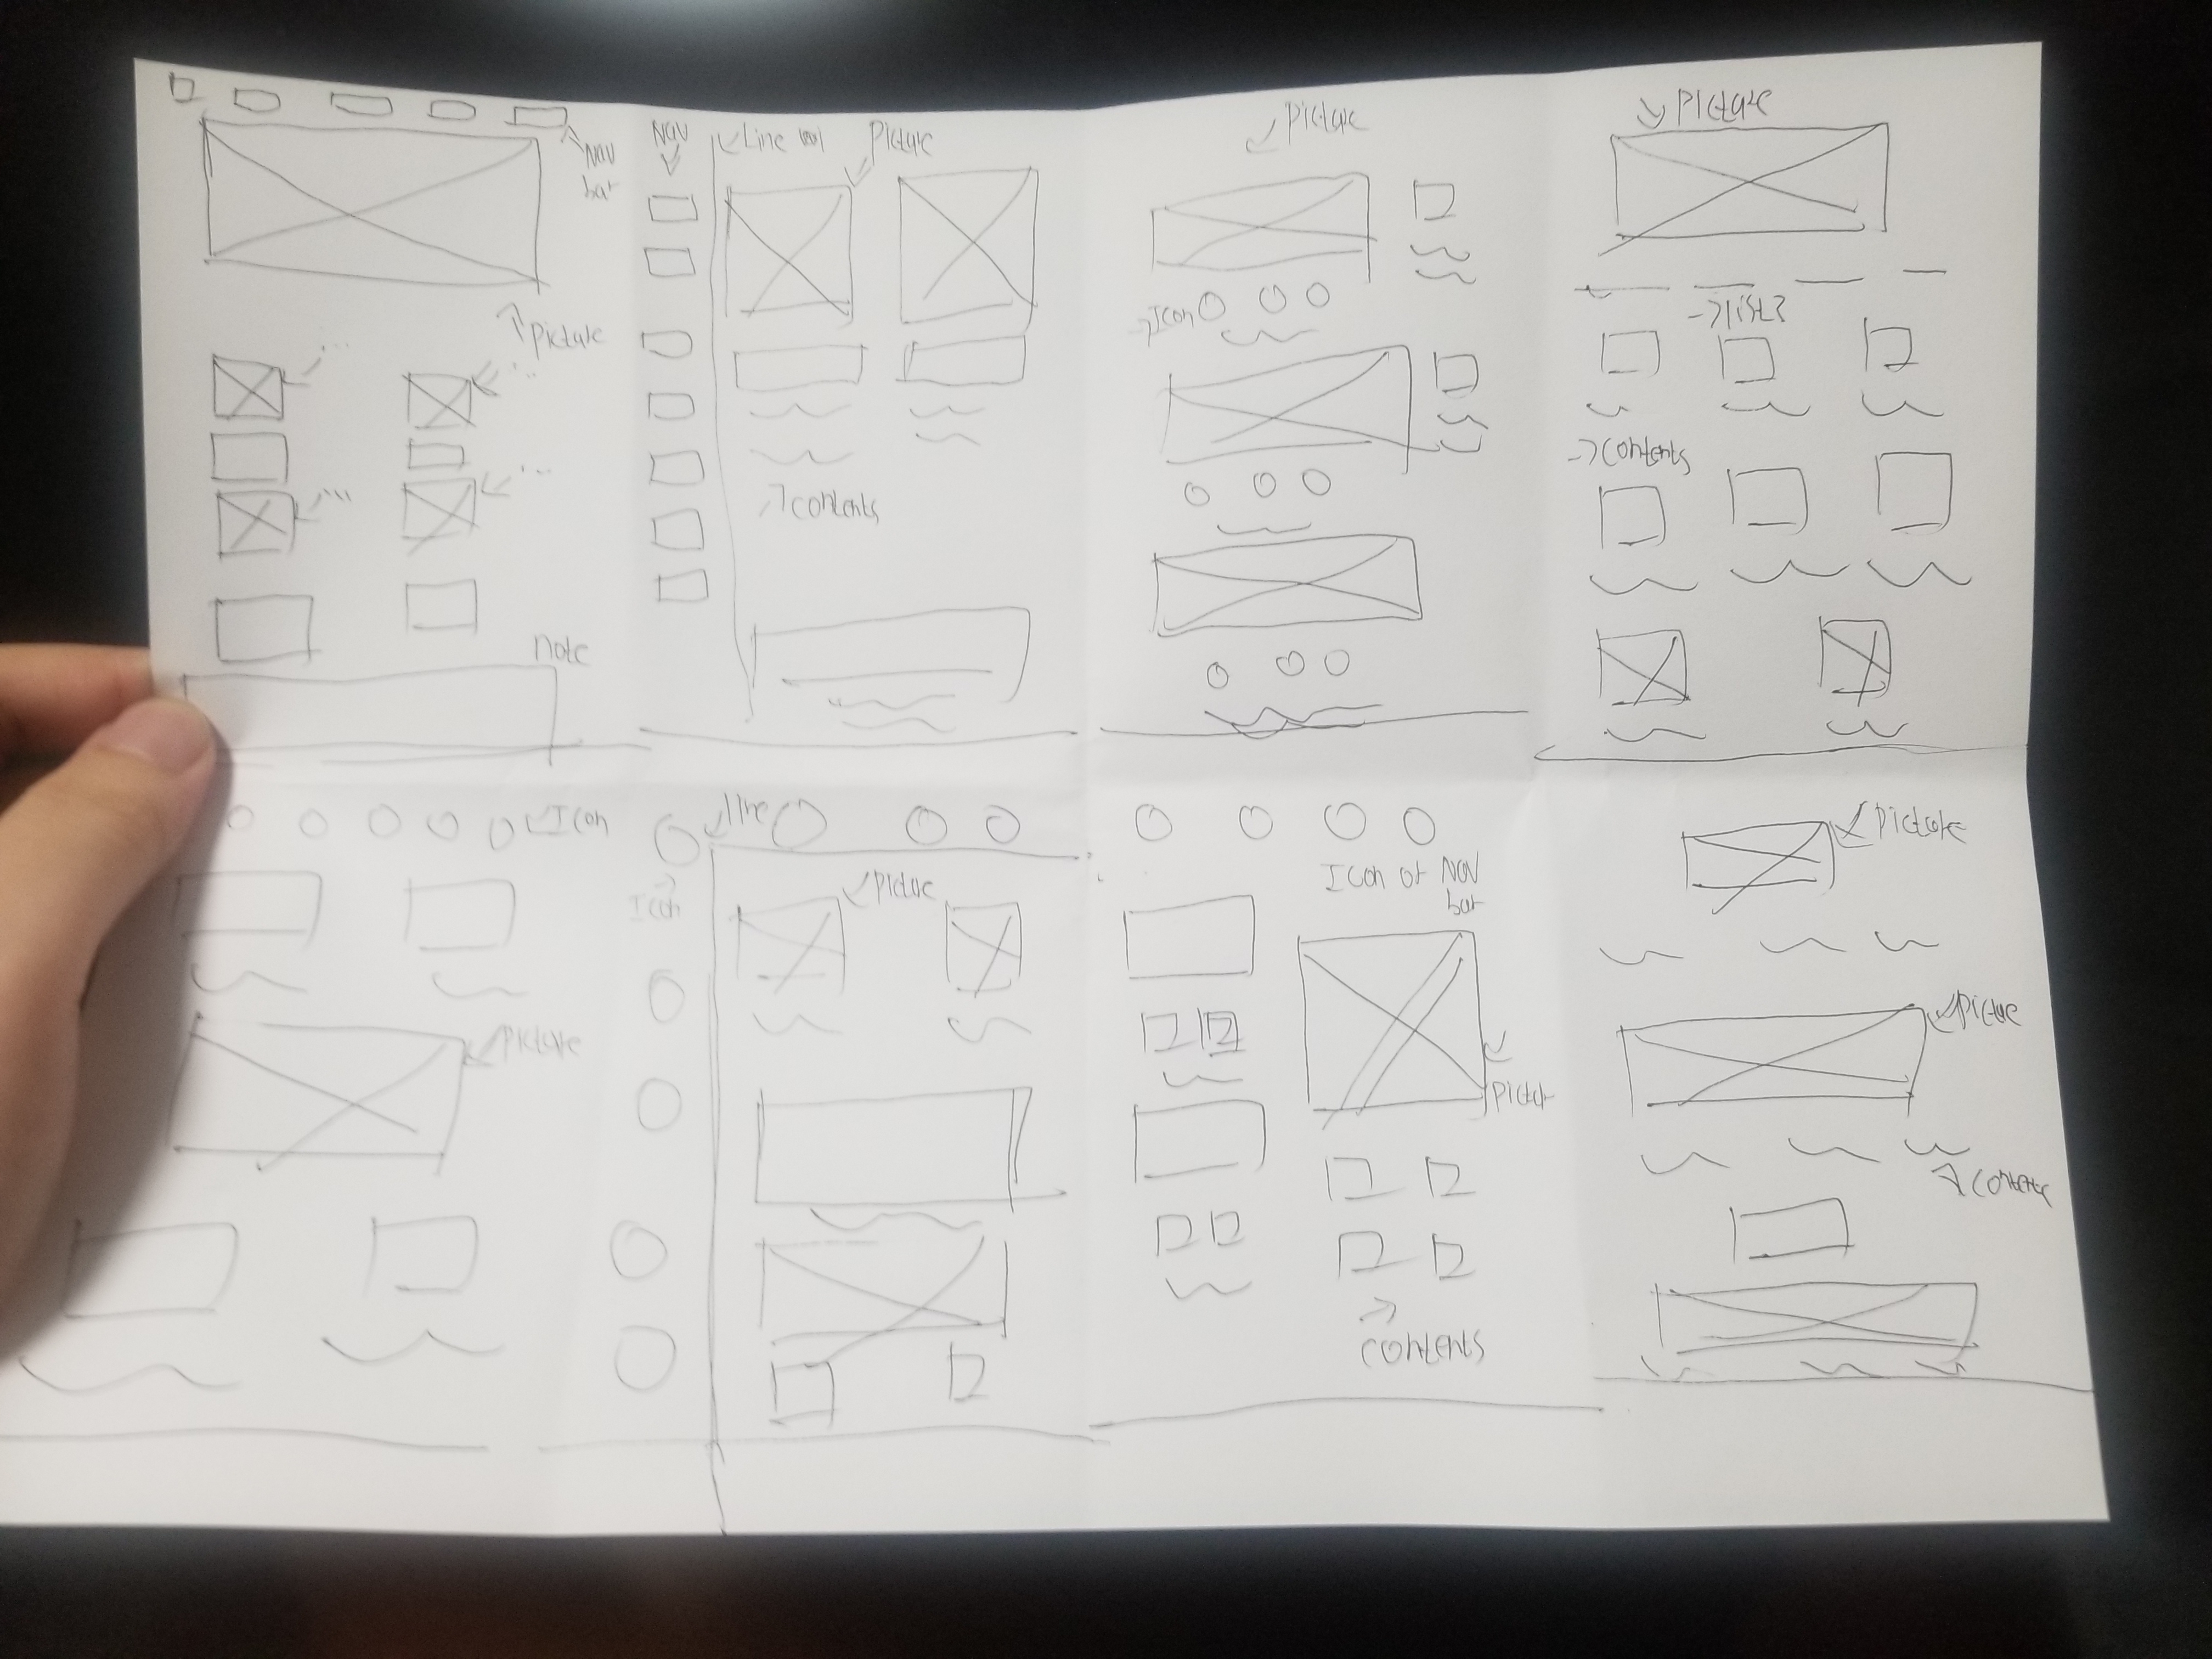 Nav
bar
Picture
note
Nav
Line
Picture
contents
Picture
Icon
Picture
list?
contents
Icon
Picture
line
Icon
Picture
Icon or Nav
bar
Pictur
contents
Picture
Picture